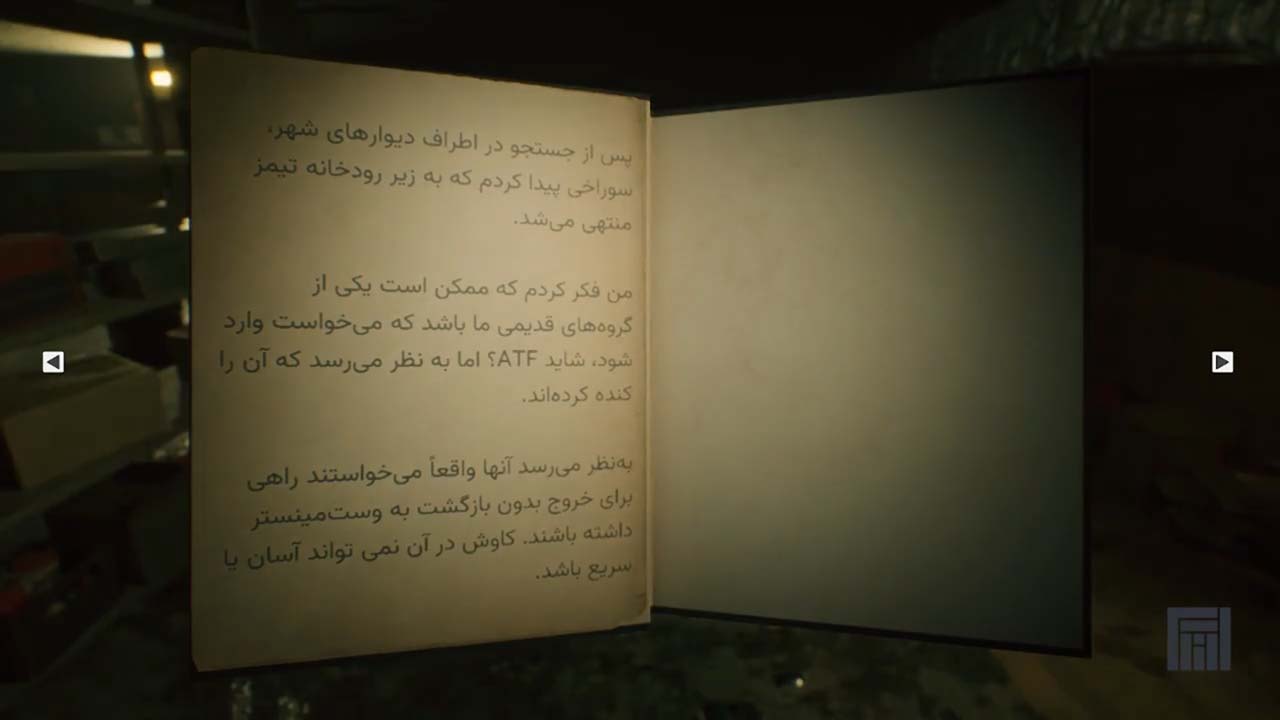 پس از جستجو در اطراف دیوارهای شهر،
سوراخی پیدا کردم که به زیر رودخانه تیمز
منتهی می‌شد.
من فکر کردم که ممکن است یکی از
گروه‌های قدیمی ما باشد که می‌خواست وارد
شود، شاید ATF؟ اما به نظر می‌رسد که آن را
کنده کرده‌اند.
به‌نظر می‌رسد آنها واقعاً می‌خواستند راهی
برای خروج بدون بازگشت به وست‌مینستر
داشته باشند. کاوش در آن نمی تواند آسان یا
سریع باشد.